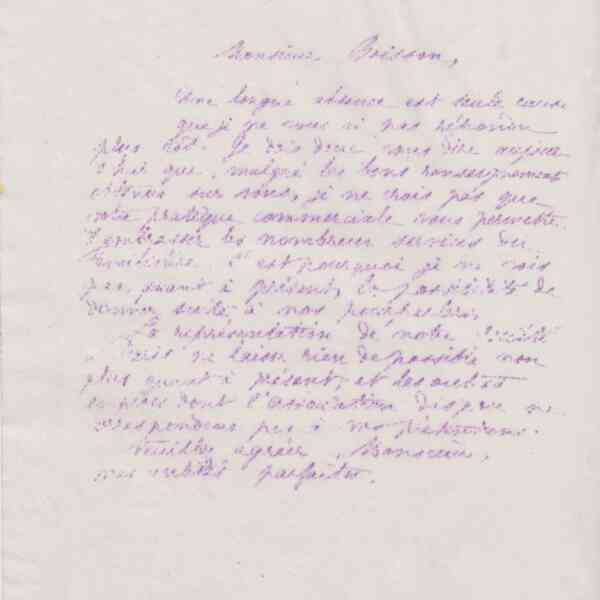 Monsieur Boisson,
Une longue absence est seule cause
que je ne vous ai pas répondu
plus tôt. Je dois donc vous dire aujour
d'hui que, malgré les bons renseignements
obtenus sur vous, je ne crois pas que
votre pratique commerciale vous permette
d'embrasser les nombreux services
C'est pourquoi je ne vois
pas, quant à présent, la possibilité de
donner suite à nos pourparlers.
La représentation de notre Société
à Paris ne laisse rien de possible non
plus quant à présent, et les autres
emplois dont l'association dispose ne
correspondent pas à vos
Veuillez agréer, Monsieur,
mes civilités parfaites.